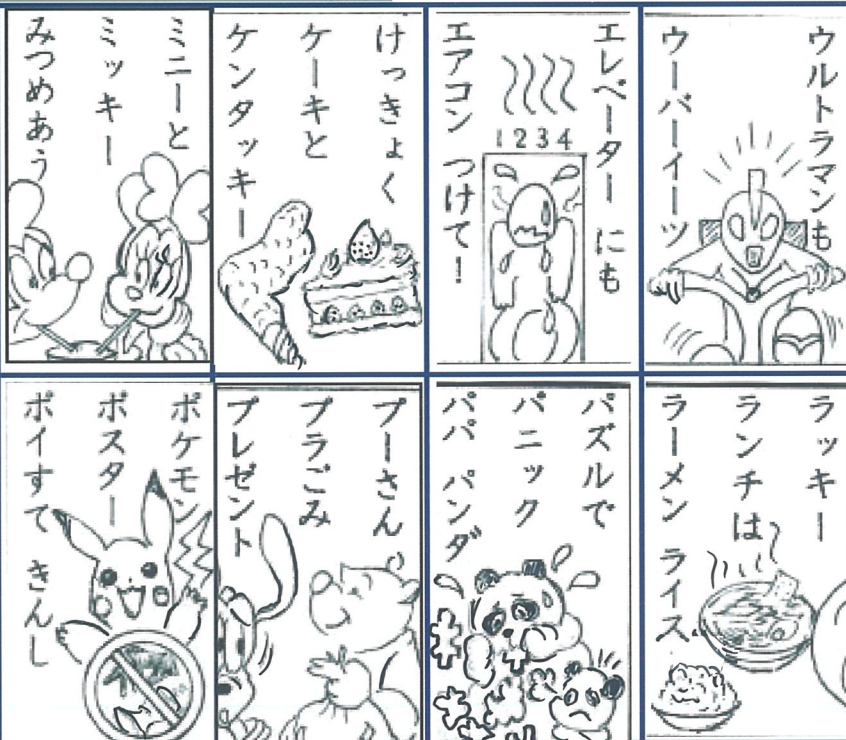 ウルトラマンも
ウーバーイーツ
エレベーター にも
エアコン つけて！
1234
けっきょく
ケーキと
ケンタッキー
ミニーと
ミッキー
みつめあう
ラッキー
ランチは
ラーメン ライス
パズルで
パニック
パパ パンダ
プーさん
プラごみ
プレゼント
ポケモン
ポスター
ポイすて きんし